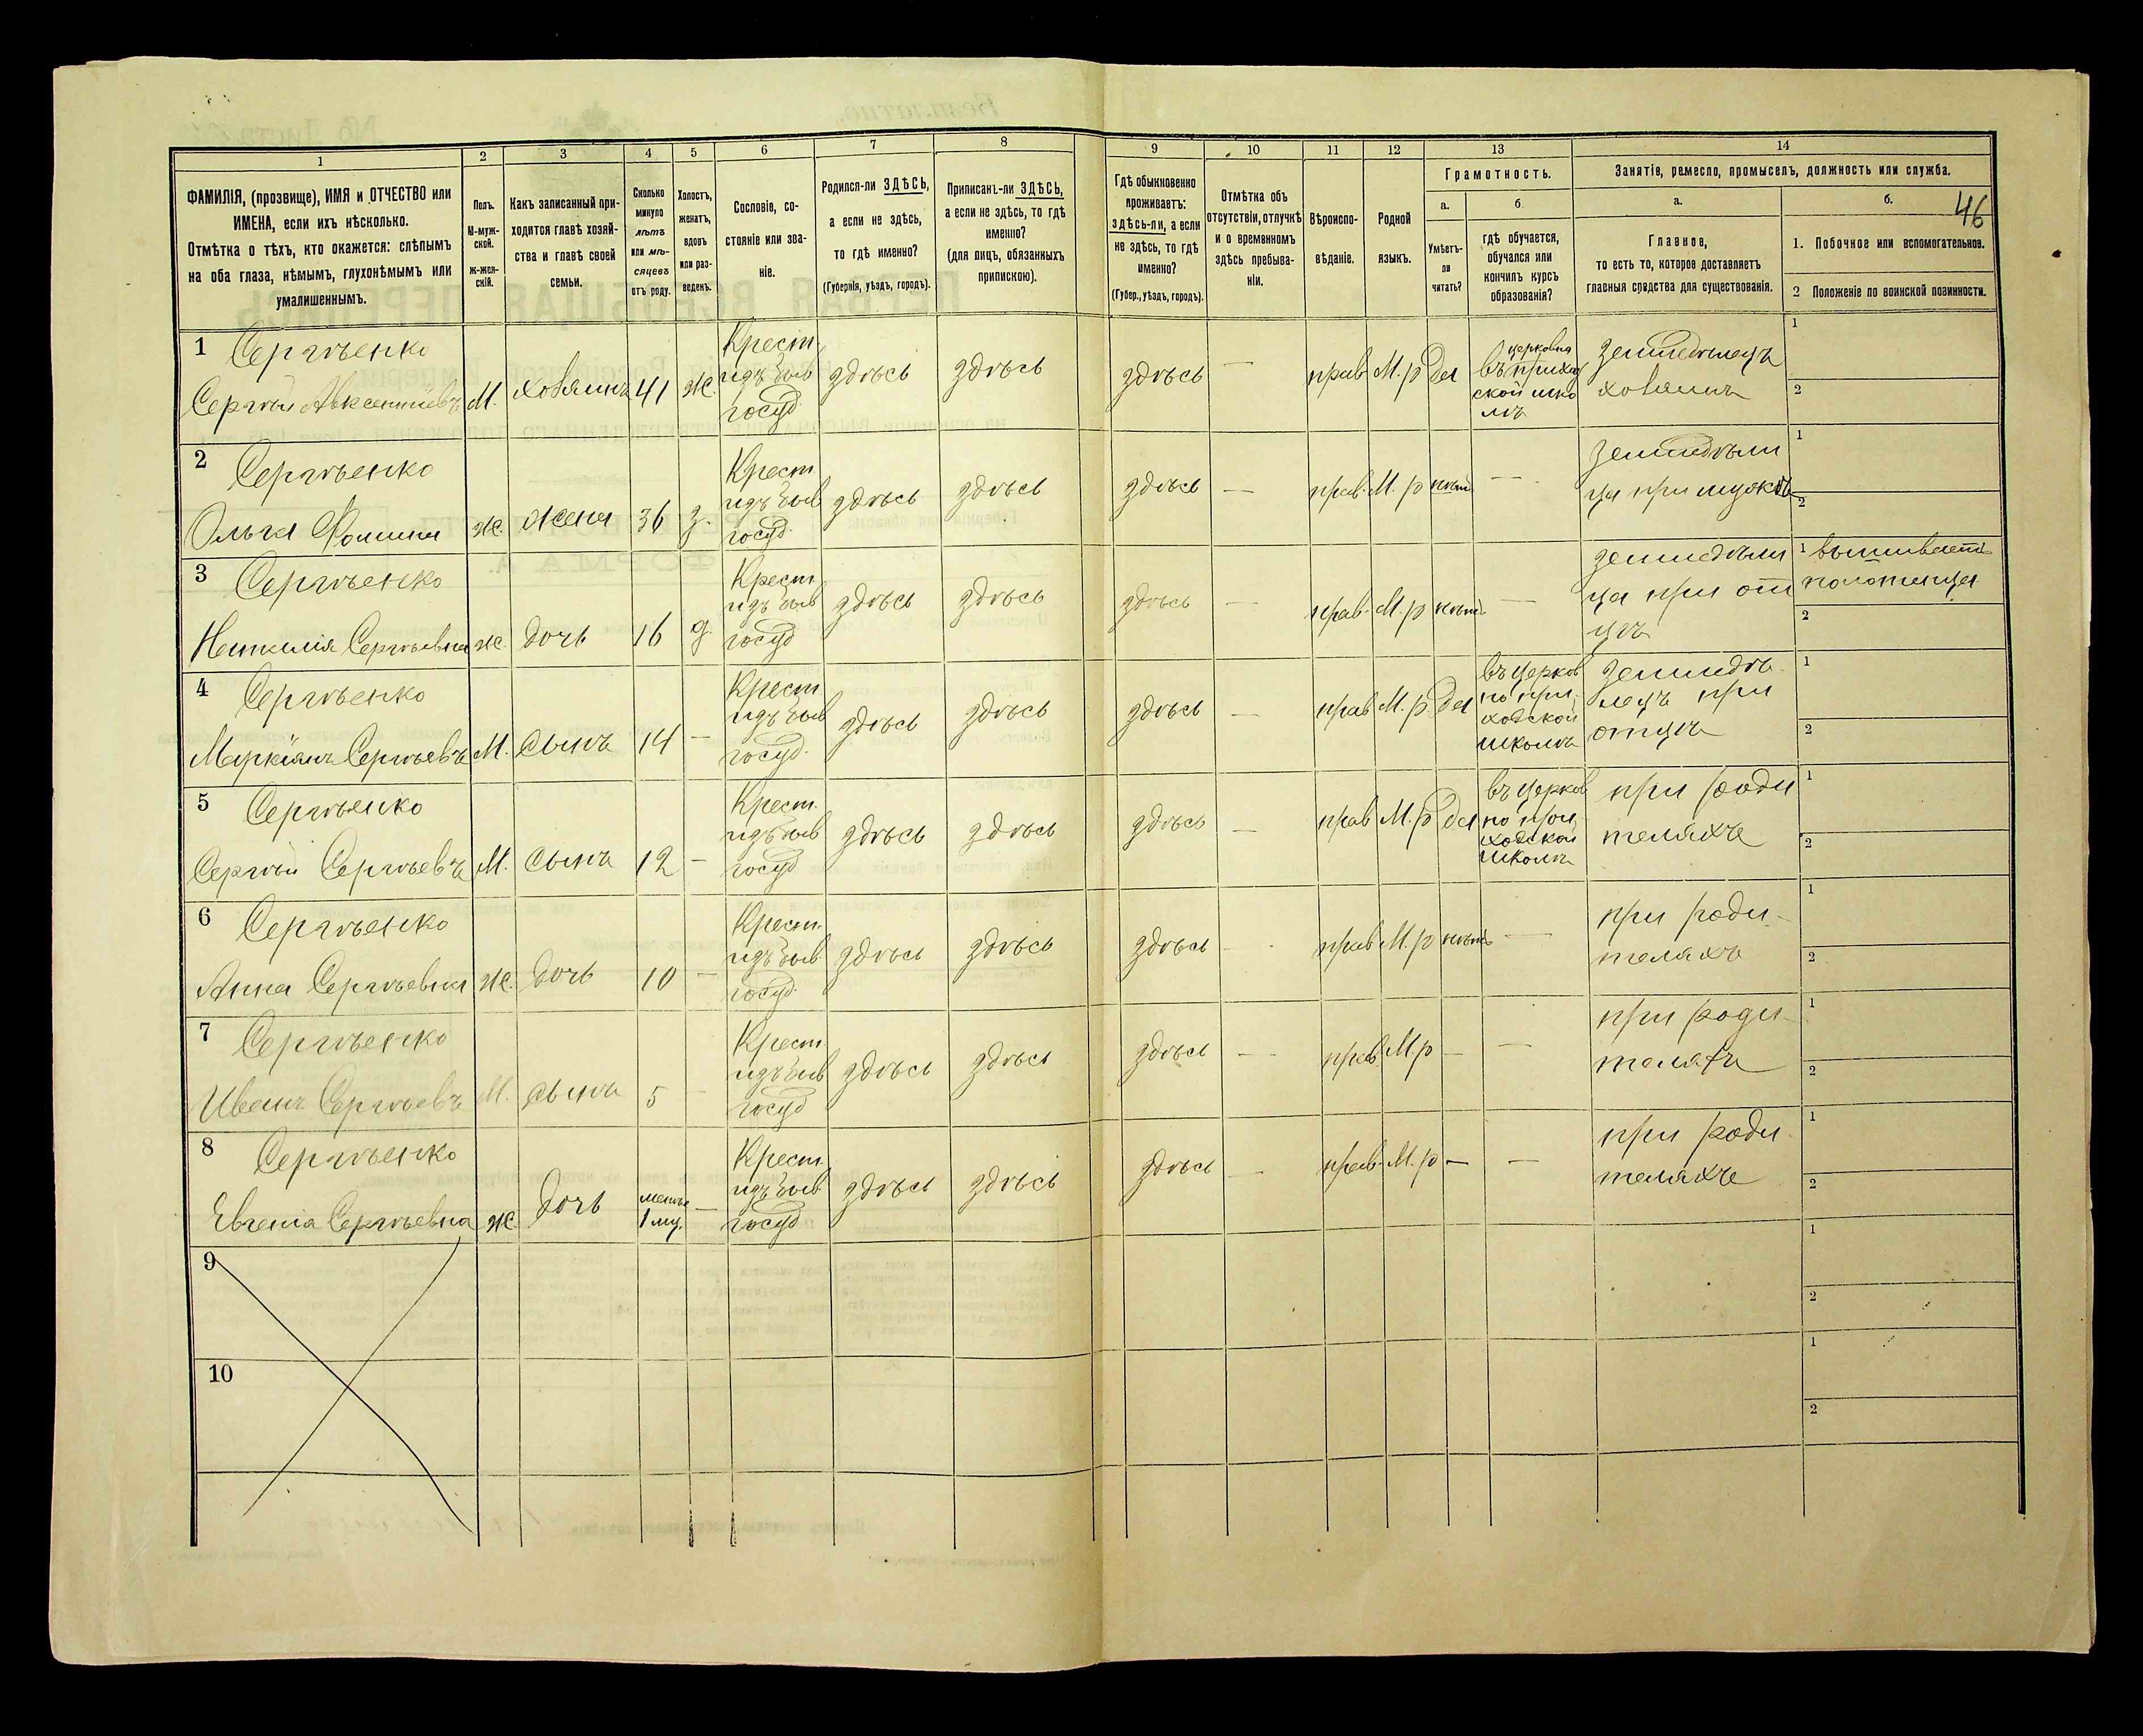 46
1 2 3 4 5 6 7 8 9 10 11 12 13 14
ФАМИЛІЯ, (прозвище), ИМЯ и ОТЧЕСТВО или
ИМЕНА, если ихъ нѣсколько.
Отмѣтка о тѣхъ, кто окажется: слѣпымъ
на оба глаза, нѣмымъ, глухонѣмымъ или
умалишеннымъ.
Полъ.
М-муж-
ской.
ж-жен-
скій.
Какъ записанный при-
ходится главѣ хозяй-
ства и главѣ своей
семьи.
Сколько
минуло
лѣтъ
или мѣ-
сяцевъ
отъ роду.
Холостъ,
женатъ,
вдовъ
или раз-
веденъ.
Сословіе, со-
стояніе или зва-
ніе.
Родился-ли ЗДѢСЬ,
а если не здѣсь,
то гдѣ именно?
(Губернія, уѣздъ, городъ).
Приписанъ-ли ЗДѢСЬ,
а если не здѣсь, то гдѣ
именно?
(для лицъ, обязанныхъ
припискою).
Гдѣ обыкновенно
проживаетъ:
здѣсь-ли, а если
не здѣсь, то гдѣ
именно?
(Губер., уѣздъ, городъ).
Отмѣтка объ
отсутствіи, отлучкѣ
и о временномъ
здѣсь пребыва-
ніи.
Вѣроиспо-
вѣданіе.
Родной
языкъ.
Грамотность.
а.
Умѣетъ-
ли
читать?
б
гдѣ обучается,
обучался или
кончилъ курсъ
образованія?
Занятіе, ремесло, промыселъ, должность или служба.
а.
Главное,
то есть то, которое доставляетъ
главныя средства для существованія.
б.
1. Побочное или вспомогательное.
2 Положеніе по воинской повинности.
1 Сергѣенко
Сергѣй Авксентіевъ М. хозяинъ 41 Ж.
Крест
изъ быв
госуд.
здѣсь здѣсь здѣсь — прав М. р да
церковно
въ приход
ской шко
лѣ
земледѣлецъ
хозяинъ
1
2
2 Сергѣенко
Ольга Фомина Ж. жена 36 з.
Крест.
изъ быв
госуд.
здѣсь здѣсь здѣсь — прав. М. р нѣтъ —
земледѣли
ца при мужѣ
1
2
3 Сергѣенко
Наталія Сергѣевна Ж. дочь 16 д.
Крест.
изъ быв
госуд
здѣсь здѣсь здѣсь — прав. М. р нѣтъ —
земледѣли
ца при от
цѣ
1 вышиваетъ
полотенца
2
4 Сергѣенко
Маркіянъ Сергѣевъ М. сынъ 14 —
Крест
изъ быв
госуд.
здѣсь здѣсь здѣсь — прав М. р да
въ церков
но при-
ходской
школѣ
земледѣ-
лецъ при
отцѣ
1
2
5 Сергѣенко
Сергѣй Сергѣевъ М. сынъ 12 —
Крест.
изъ быв
госуд
здѣсь здѣсь здѣсь — прав М. р да
въ церков
но при
ходской
школѣ
при роди
теляхъ
1
2
6 Сергѣенко
Анна Сергѣевна Ж. дочь 10 —
Крест.
изъ быв.
госуд.
здѣсь здѣсь здѣсь — прав М. р нѣтъ —
при роди-
теляхъ
1
2
7 Сергѣенко
Иванъ Сергѣевъ М. сынъ 5 —
Крест.
изъ быв
госуд
здѣсь здѣсь здѣсь — прав. М. р — —
при роди-
теляхъ
1
2
8 Сергѣенко
Евгенія Сергѣевна Ж. дочь
менѣе
1 мц.
—
Крест.
изъ быв.
госуд
здѣсь здѣсь здѣсь — прав. М. р — —
при роди-
теляхъ
1
2
9
1
2
10
1
2